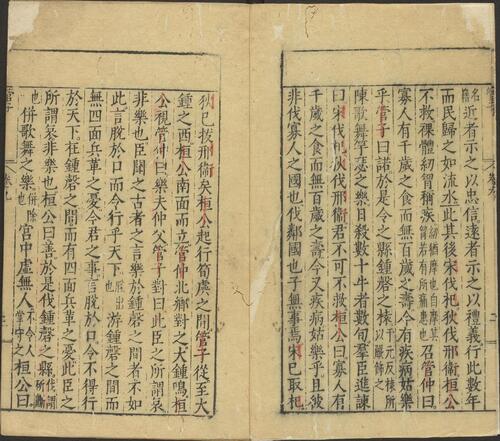 近者示之以忠信遠者示之以禮義行此數年
而民歸之如流水此其後宋伐杞狄伐邢衛桓公
不救裸體紉胷稱疾紉猶摩也自摩其胷若有所痛患也召管仲曰
寡人有千歲之食而無百歲之壽今有疾病姑樂
乎管子曰諾於是令之縣鍾磬之榱于元反榱所以嚴飾之
陳歌舞竽瑟之樂日殺數十牛者數旬羣臣進諫
曰宋伐杞狄伐邢衛君不可不救桓公曰寡人有
千歲之食而無百歲之壽今又疾病姑樂乎且彼
非伐寡人之國也伐鄰國也子無事焉宋已取杞
狄已拔邢衛矣桓公起行筍虡之間管子從至大
鍾之西桓公南面而立管仲北鄉對之大鍾鳴桓
公視管仲曰樂夫仲父管子對曰此臣之所謂哀
非樂也臣聞之古者之言樂於鍾磬之間者不如
此言脫於口而令行乎天下脫出也游鍾磬之間而
無四面兵革之憂今君之事言脫於口令不得行
於天下在鍾磬之間而有四面兵革之憂此臣之
所謂哀非樂也桓公曰善於是伐鍾磬之縣伐謂斫斷
也併歌舞之樂併除也宮中虛無人不令人掌守之桓公曰